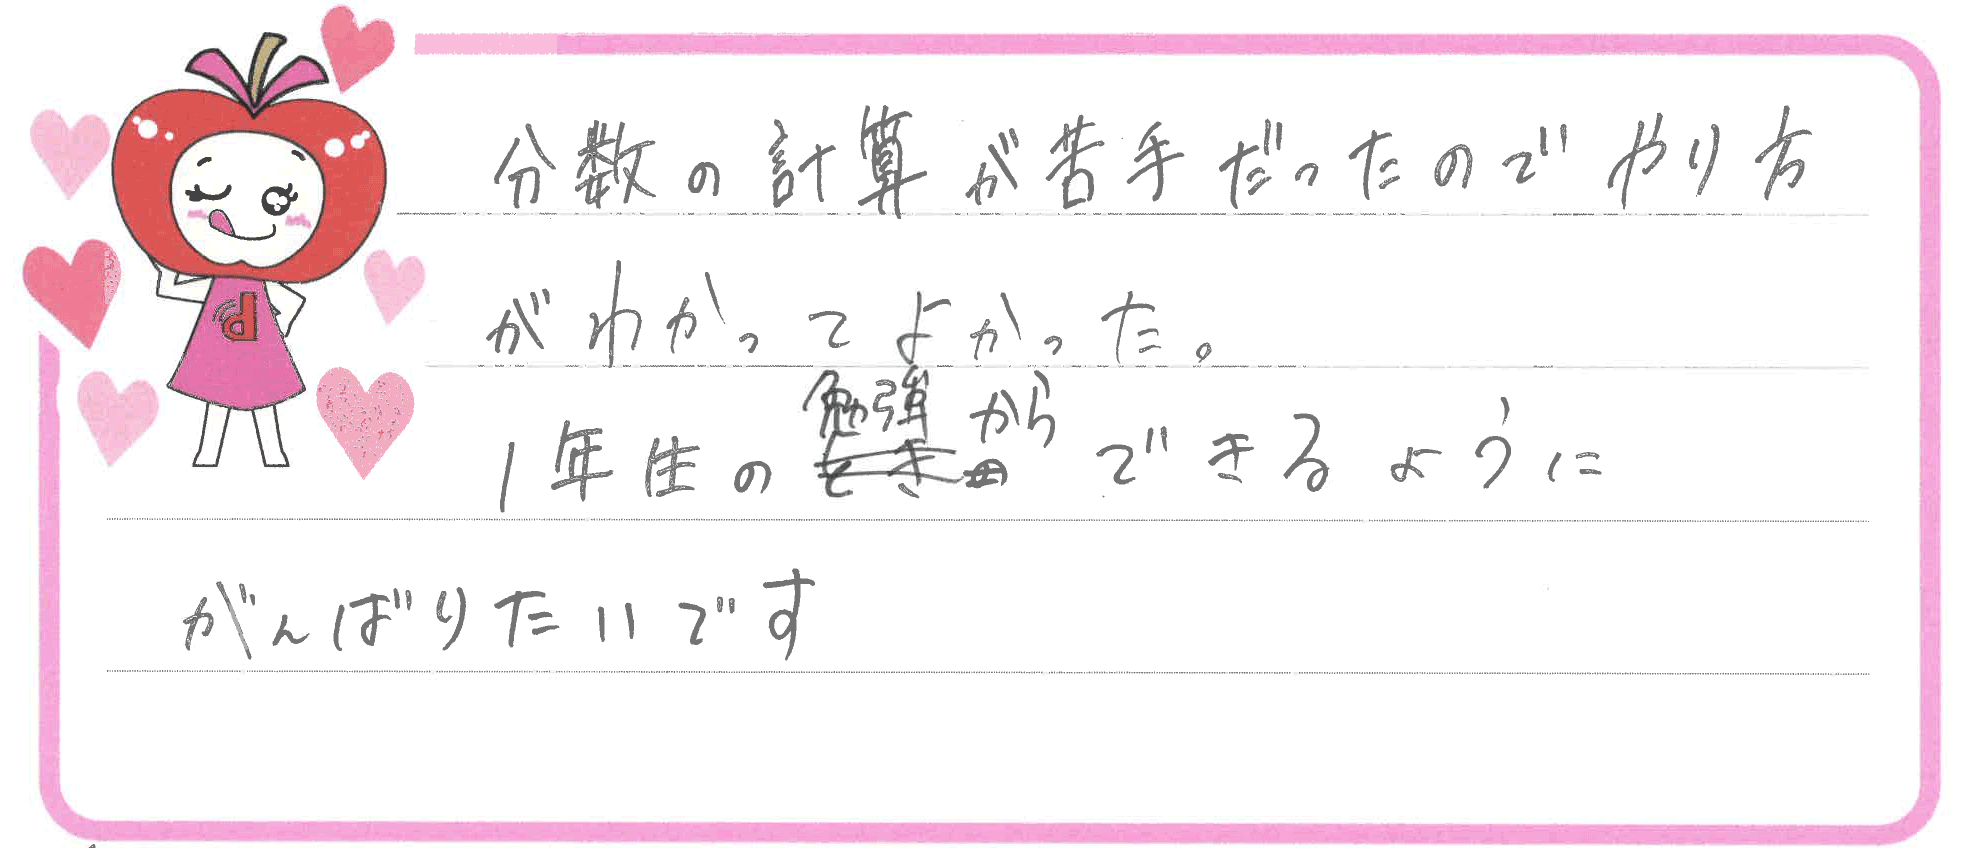 分数の計算が苦手だったのでやり方
がわかってよかった。
1年生の勉強からできるように
がんばりたいです